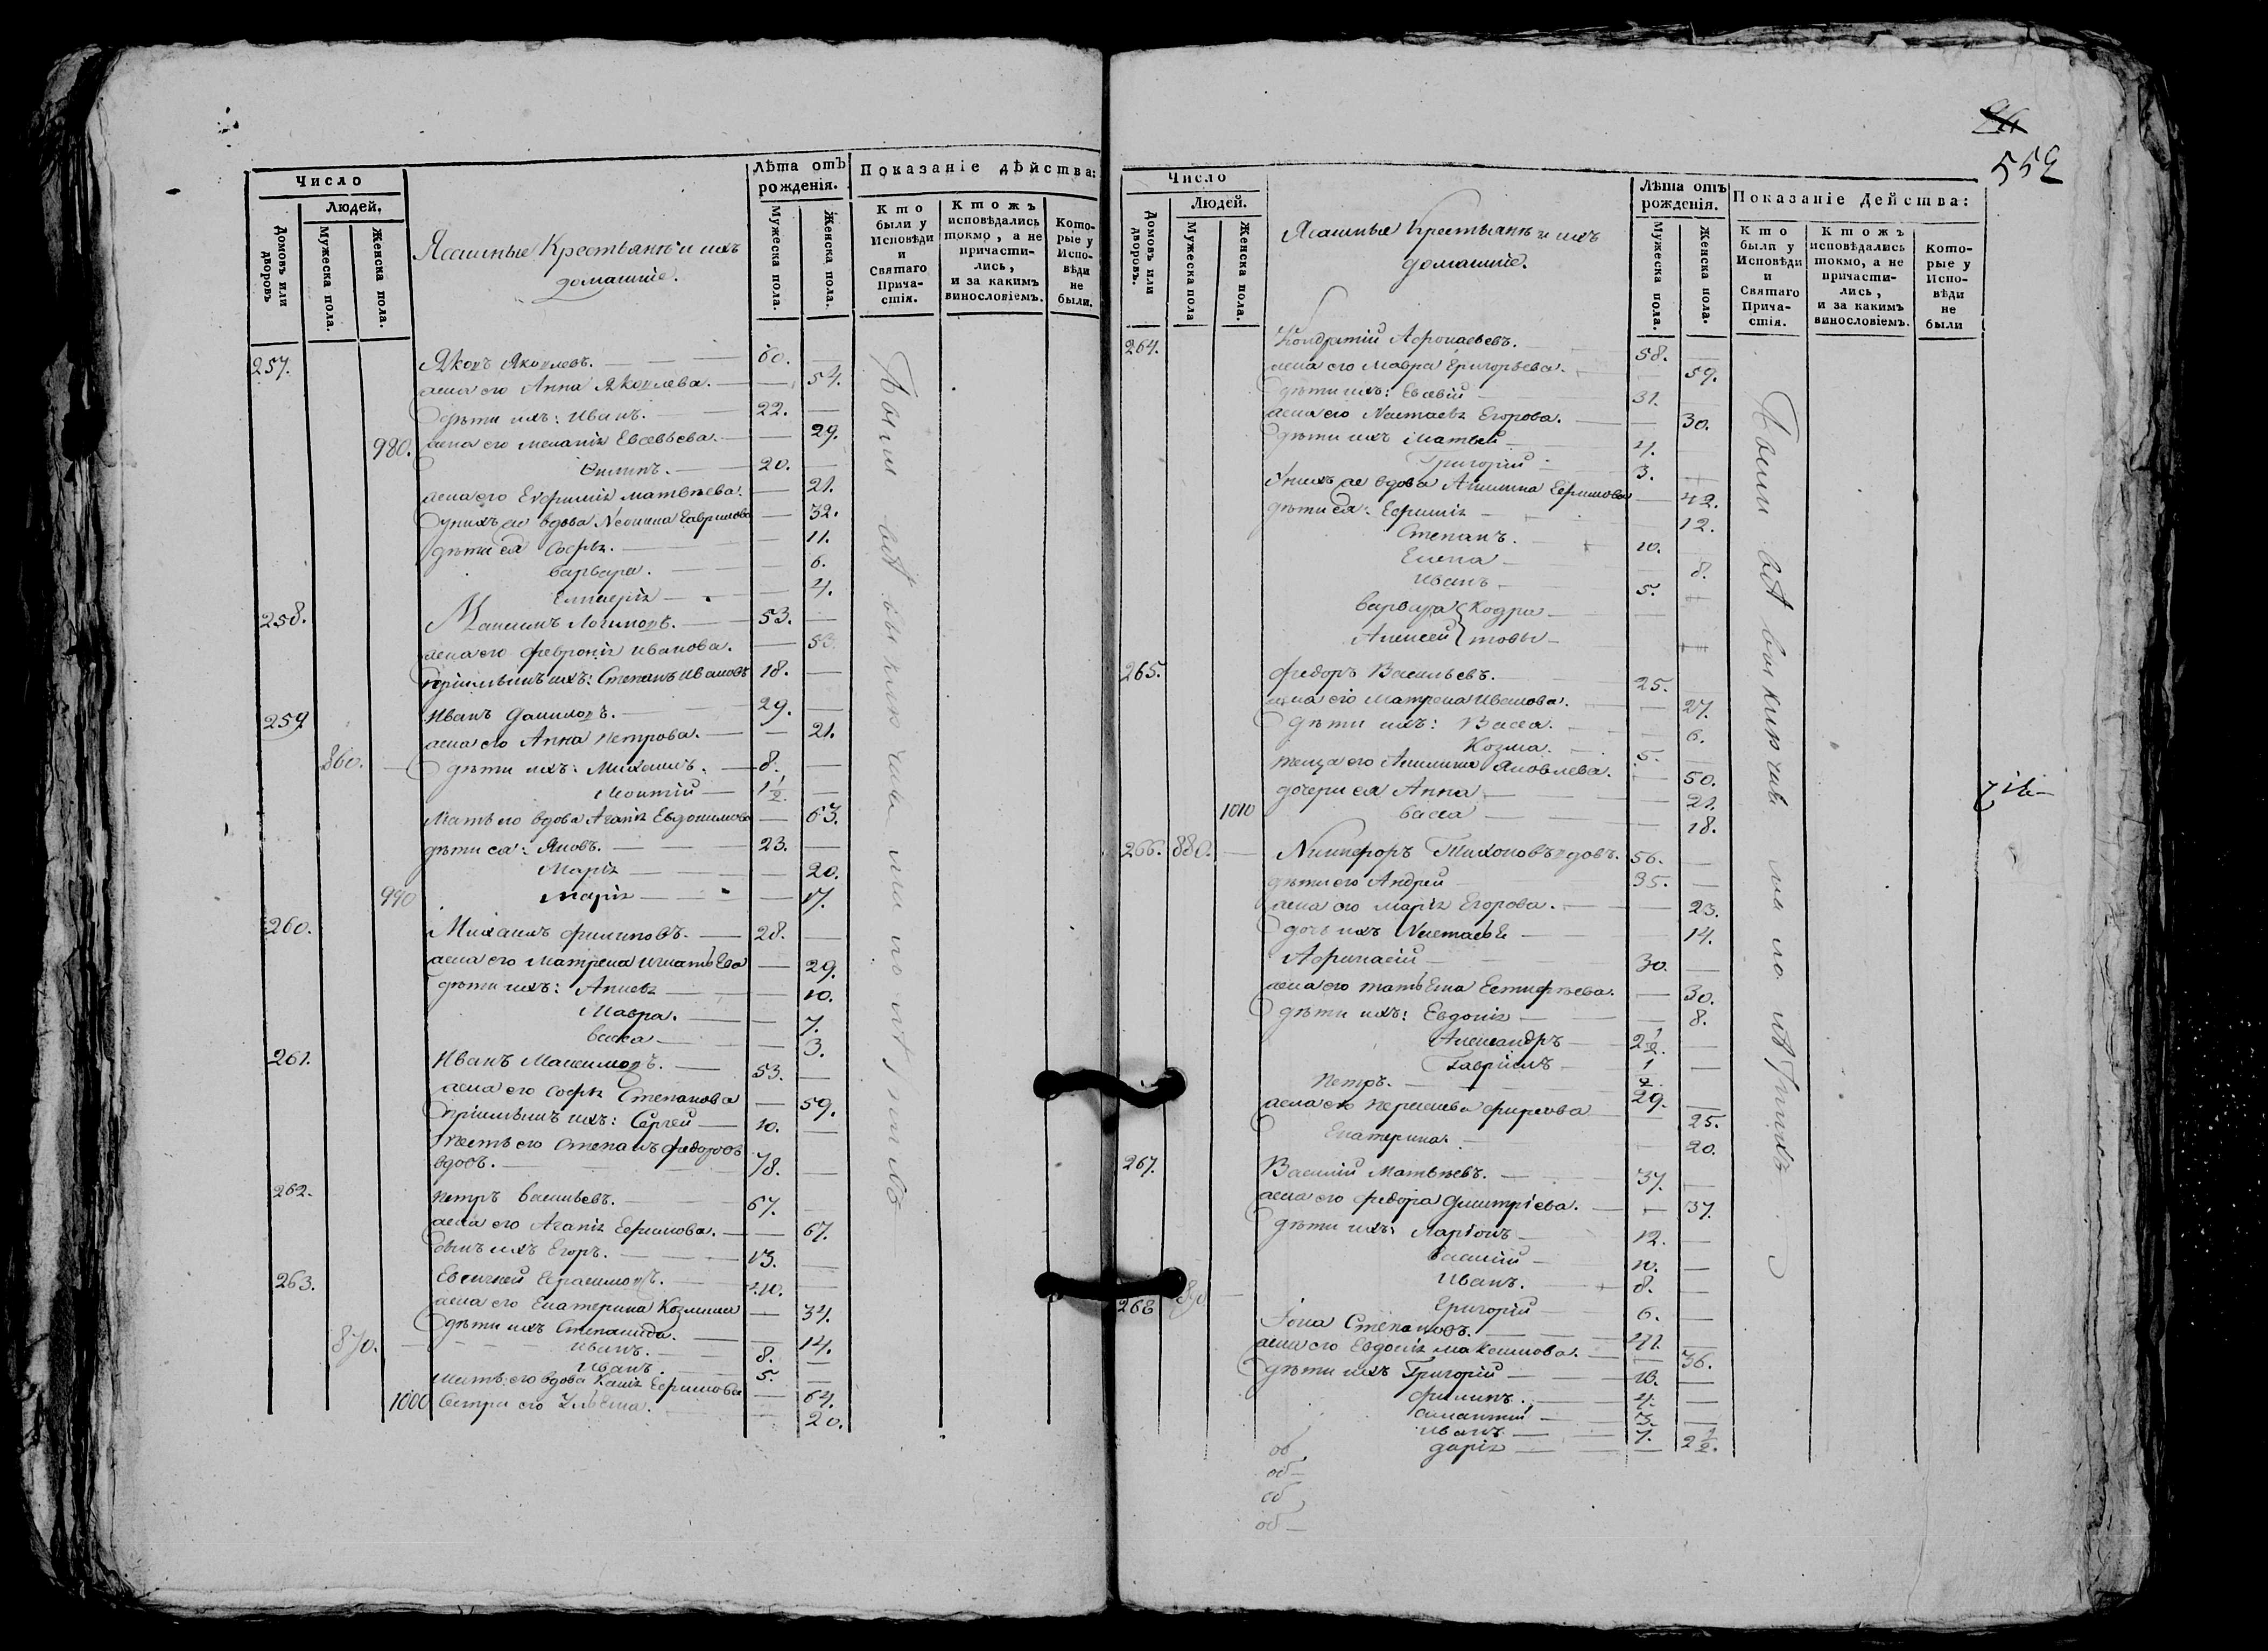 Число
Людей,
Домовъ или дворовъ
Мужеска пола.
Женска пола.
Ясашные Крестьянѣ и ихъ
домашніе.
Лѣта отъ рожденія.
Мужеска пола.
Женска пола.
Показаніе дѣйства:
Кто были у Исповѣди и Святаго Прича-стія.
Ктожъ исповѣдались токмо, а не причасти-лись, и за какимъ винословіемъ.
Кото-рые у Испо-вѣди не были.
257. Яковъ Яковлевъ. 60.
жена его Анна Яковлева. 54.
дѣти ихъ: Иванъ. 22.
980. жена его Меланія Евсевьева. 29.
Филипъ. 20.
жена его Евфимія Матвѣева. 21.
у нихъ же вдова Неонила Гаврилова 32.
дѣти ея Софья. 11.
Варвара. 6.
Гликерія 4.
258. Максимъ Логиновъ. 53.
жена его Февронія Иванова. 53.
пріимышъ ихъ: Степанъ Ивановъ 18.
259. Иванъ Даниловъ. 29.
жена его Анна Петрова. 21.
860. дѣти ихъ: Михаилъ. 8.
Леонтій 1½.
Мать его вдова Агапія Евдокимова 63.
дѣти ея: Яковъ. 23.
Марія 20.
990 Марія 17.
260. Михаилъ Филиповъ. 28.
жена его Матрена Игнатьева 29.
дѣти ихъ: Анисья 10.
Мавра. 7.
Васса 3.
261. Иванъ Максимовъ. 53.
жена его Софья Степанова 59.
пріимышъ ихъ: Сергей 10.
Тесть его Степанъ Федоровъ
вдовъ. 78.
262. Петръ Васильевъ. 67.
жена его Агапія Ефимова. 67.
сынъ ихъ Егоръ. 13.
263. Евсигней Герасимовъ. 40.
жена его Екатерина Козмина 34.
дѣти ихъ Степанида. 14.
870. Иванъ. 8.
Иванъ. 5.
Мать его вдова Ксенія Ефимова 64.
1000 Сестра его Ульяна. 20.
552
Число
Людей.
Домовъ или дворовъ.
Мужеска пола
Женска пола.
Ясашные Крестьянѣ и ихъ
домашніе.
Лѣта отъ рожденія.
Мужеска пола.
Женска пола.
Показаніе Действа:
Кто были у Исповѣди и Святаго Прича-стія.
Ктожъ исповѣдались токмо, а не причасти-лись, и за какимъ винословіемъ.
Кото-рые у Испо-вѣди не были
264. Кондратій Афонасьевъ. 58.
жена его Мавра Григорьева. 59.
дѣти ихъ: Евсевій 31.
жена его Настасья Егорова. 30.
дѣти ихъ Матвей 4.
Григорій 3.
У нихъ же вдова Акилина Ефимова 42.
дѣти ея: Ефимія 12.
Степанъ. 10.
Елена 8.
Иванъ 5.
Варвара
Алексей
265. Федоръ Васильевъ. 25.
жена его Матрена Иванова. 27.
дѣти ихъ: Васса. 6.
Козма. 5.
теща его Акилина Яковлева. 50.
дочери ея Анна 21.
1010 Васса 18.
266. 880. Никифоръ Тихоновъ вдовъ. 56.
дѣти его Андрей 35.
жена его Марія Егорова. 23.
дочь ихъ Настасья 14.
Афонасій 30.
жена его Татьяна Естифѣева. 30.
дѣти ихъ: Евдокія 8.
Александръ 2½.
Гавріилъ ½.
Петръ. 29.
жена его Фирсова 25.
Екатерина. 20.
267. Василій Матвѣевъ. 37.
жена его Федора Дмитріева. 37.
дѣти ихъ: Ларіонъ 12.
Василій 10.
Иванъ. 8.
890 Григорій 6.
268 Іона Степановъ. 41.
жена его Евдокія Максимова. 36.
дѣти ихъ Григорій 13.
Филипъ. 4.
3.
Иванъ 1.
Дарія 2½.
об
об
об
об